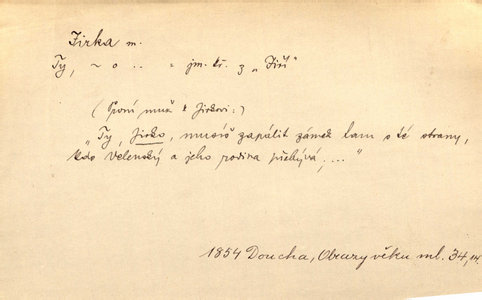 Jirka m.
Ty, ~ o .. = jm. kř. z „Jiří"
(První muž k Jirkovi:)
„Ty, Jirko, musíš zapálit zámek tam s té strany,
kdo Velenský a jeho rodina přebývá;..."
1854 Doucha, Obrazy věku ml. 34,